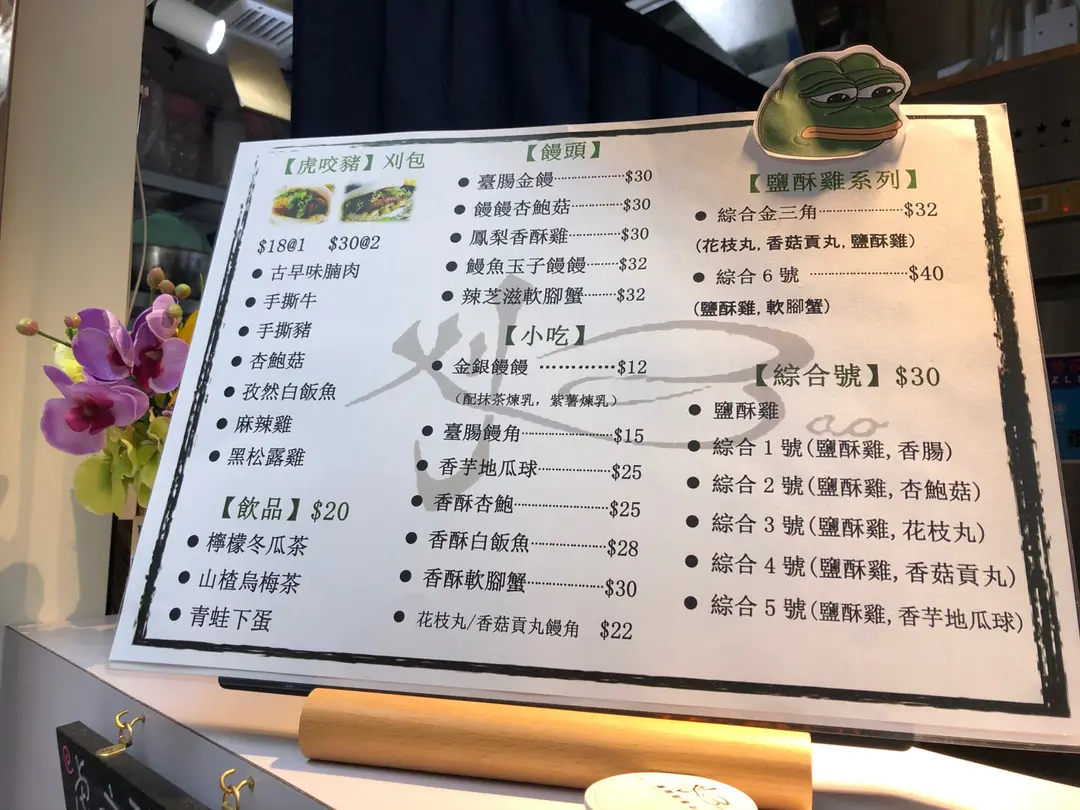 【虎咬豬】刈包
$18@1 $30@2
● 古早味腩肉
● 手撕牛
● 手撕豬
● 杏鮑菇
● 孜然白飯魚
● 麻辣雞
● 黑松露雞
【飲品】$20
● 檸檬冬瓜茶
● 山楂烏梅茶
● 青蛙下蛋
【饅頭】
● 臺腸金饅…………………$30
● 饅饅杏鮑菇……………$30
● 鳳梨香酥雞……………$30
● 鰻魚玉子饅饅………$32
● 辣芝滋軟腳蟹………$32
【小吃】
● 金銀饅饅 …………$12
(配抹茶煉乳, 紫薯煉乳)
● 臺腸饅角……………………$15
● 香芋地瓜球………………$25
● 香酥杏鮑……………………$25
● 香酥白飯魚………………$28
● 香酥軟腳蟹………………$30
● 花枝丸/香菇貢丸饅角 $22
【鹽酥雞系列】
● 綜合金三角…………………$32
(花枝丸, 香菇貢丸, 鹽酥雞)
● 綜合 6 號 ……………………$40
(鹽酥雞, 軟腳蟹)
【綜合號】$30
● 鹽酥雞
● 綜合 1 號(鹽酥雞, 香腸)
● 綜合 2 號(鹽酥雞, 杏鮑菇)
● 綜合 3 號(鹽酥雞, 花枝丸)
● 綜合 4 號(鹽酥雞, 香菇貢丸)
● 綜合 5 號(鹽酥雞, 香芋地瓜球)
刈Bao